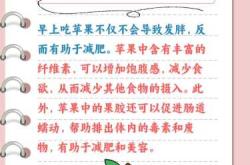 早上吃苹果不仅不会导致发胖，反
而有助于减肥。苹果中含有丰富的
纤维素，可以增加饱腹感，减少食
欲，从而减少其他食物的摄入。此
外，苹果中的果胶还可以促进肠道
蠕动，帮助排出体内的毒素和废
物，有助于减肥和美容。